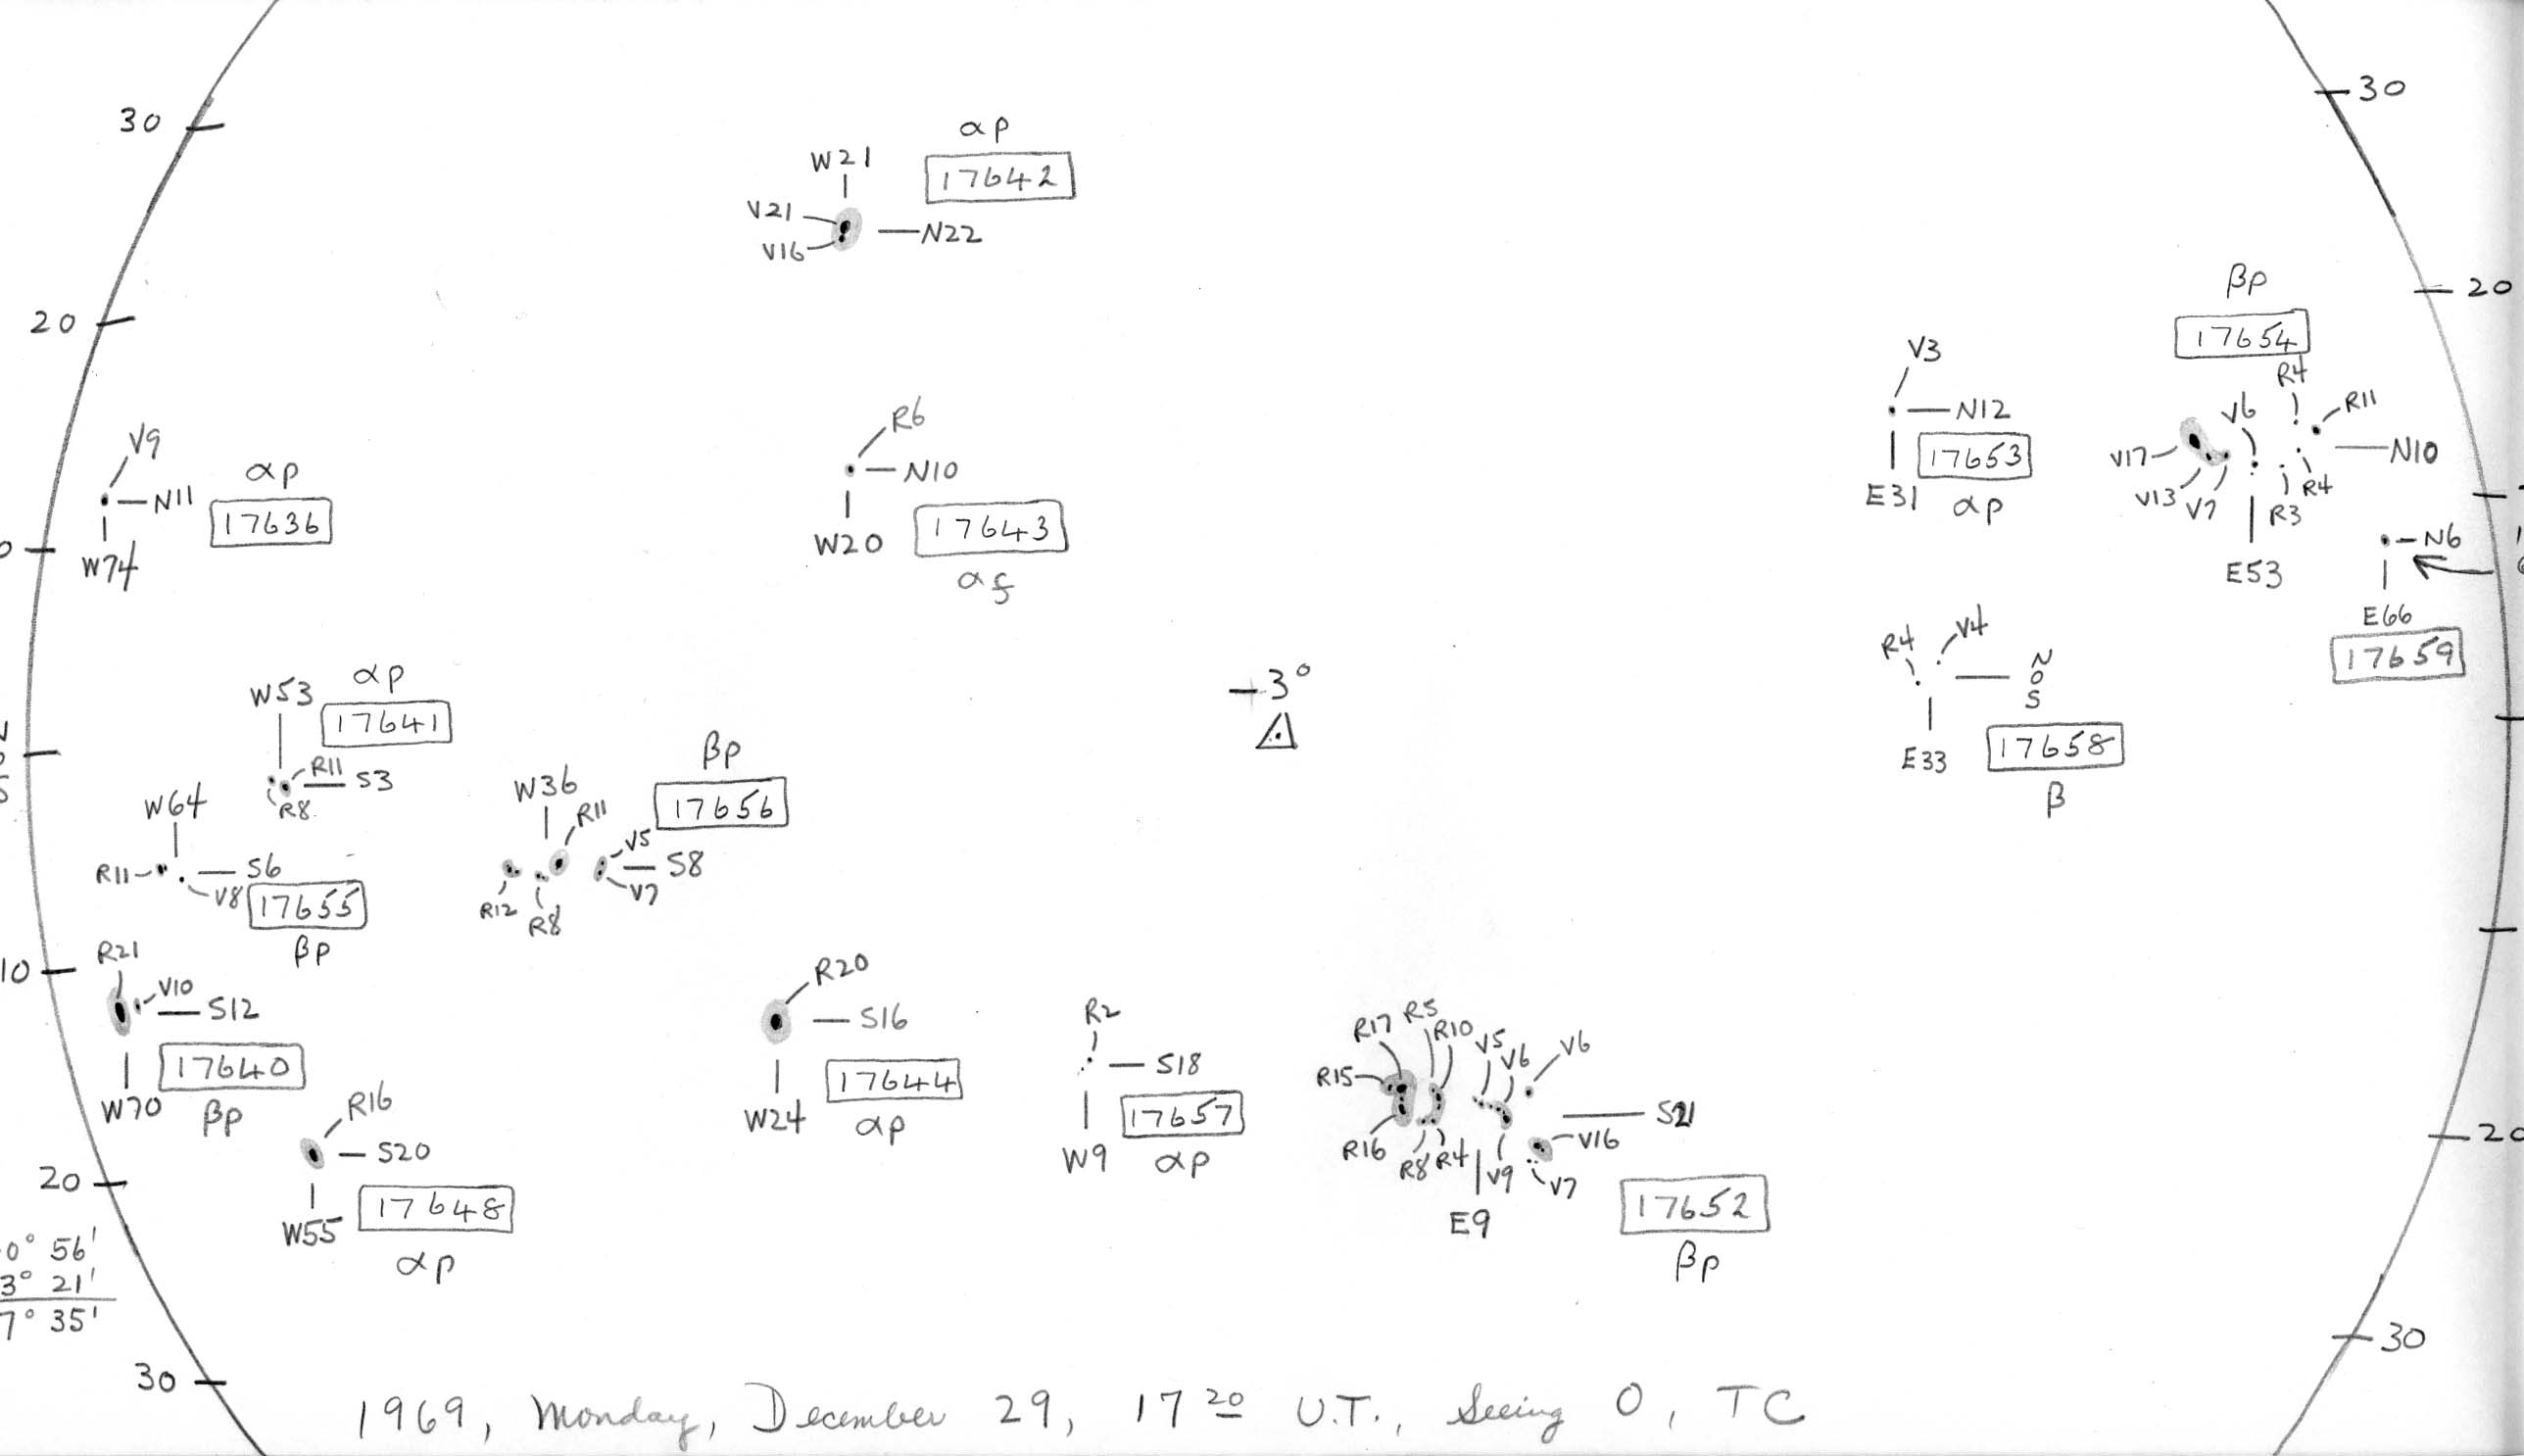 30
30
αp
W21
17642
V21
V16
N22
20
20
βp
17654
R4
V6
R11
V17
V13
V7
R3
R4
N10
E53
V3
N12
17653
E31
αp
R6
N10
W20
17643
αf
V9
N11
αp
17636
W74
N6
E66
17659
R4
V4
N
O
S
E33
17658
β
+3°
W53
αp
17641
R11
S3
R8
W64
R11
S6
V8
17655
βp
W36
R11
βp
17656
V5
S8
V7
R12
R8
10
R21
V10
S12
17640
W70
βp
R20
S16
17644
W24
αp
R2
S18
17657
W9
αp
R17
R5
R10
V5
V6
V6
R15
S21
R16
R8
R4
V9
V16
V7
E9
17652
βp
20
R16
S20
17648
W55
αp
20
0° 56'
3° 21'
7° 35'
30
30
1969, Monday, December 29, 17 20 U.T., Seeing 0, TC